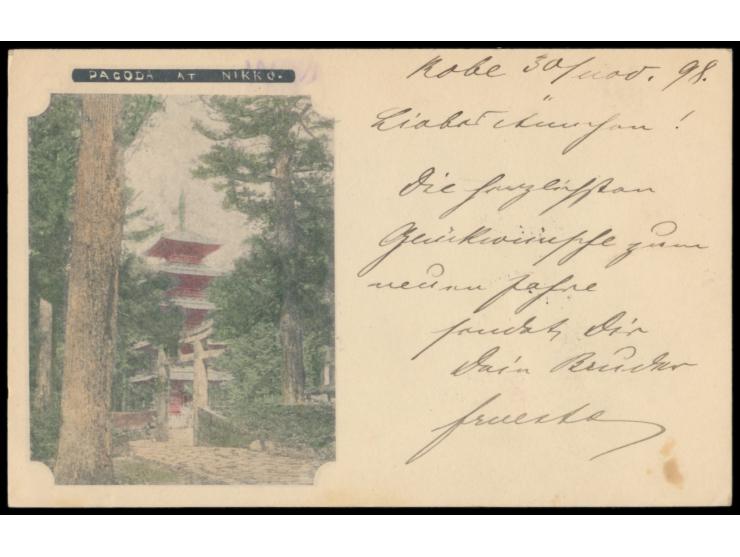 PAGODA AT NIKKO.
Kobe 30/nov. 98.
Liebes Ännchen!
Die herzlichsten
Glückwünsche zum
neuen Jahre
sendet Dir
Dein Bruder